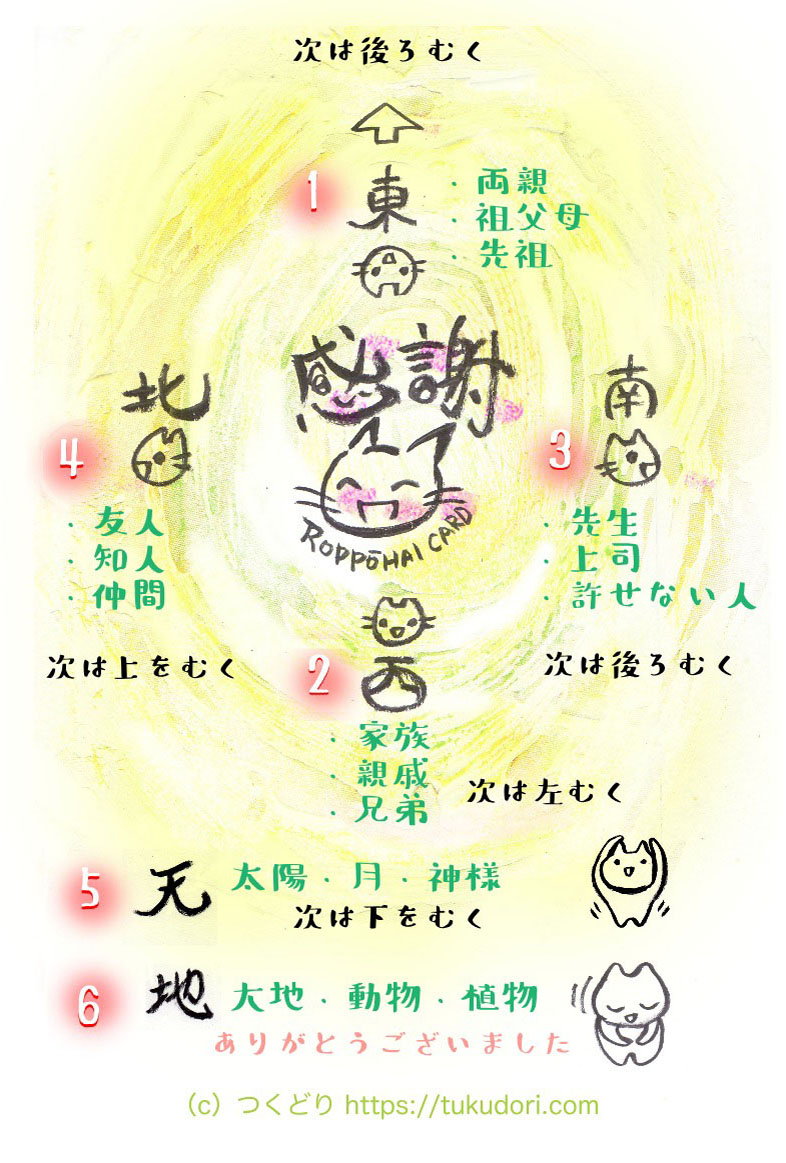 次は後ろむく
1 東
・両親
・祖父母
・先祖
感謝
ROPPŌHAI CARD
2 西
・家族
・親戚
・兄弟
次は左むく
3 南
・先生
・上司
・許せない人
次は後ろむく
4 北
・友人
・知人
・仲間
次は上をむく
5 天 太陽・月・神様
次は下をむく
6 地 大地・動物・植物
ありがとうございました
（c）つくどり https://tukudori.com